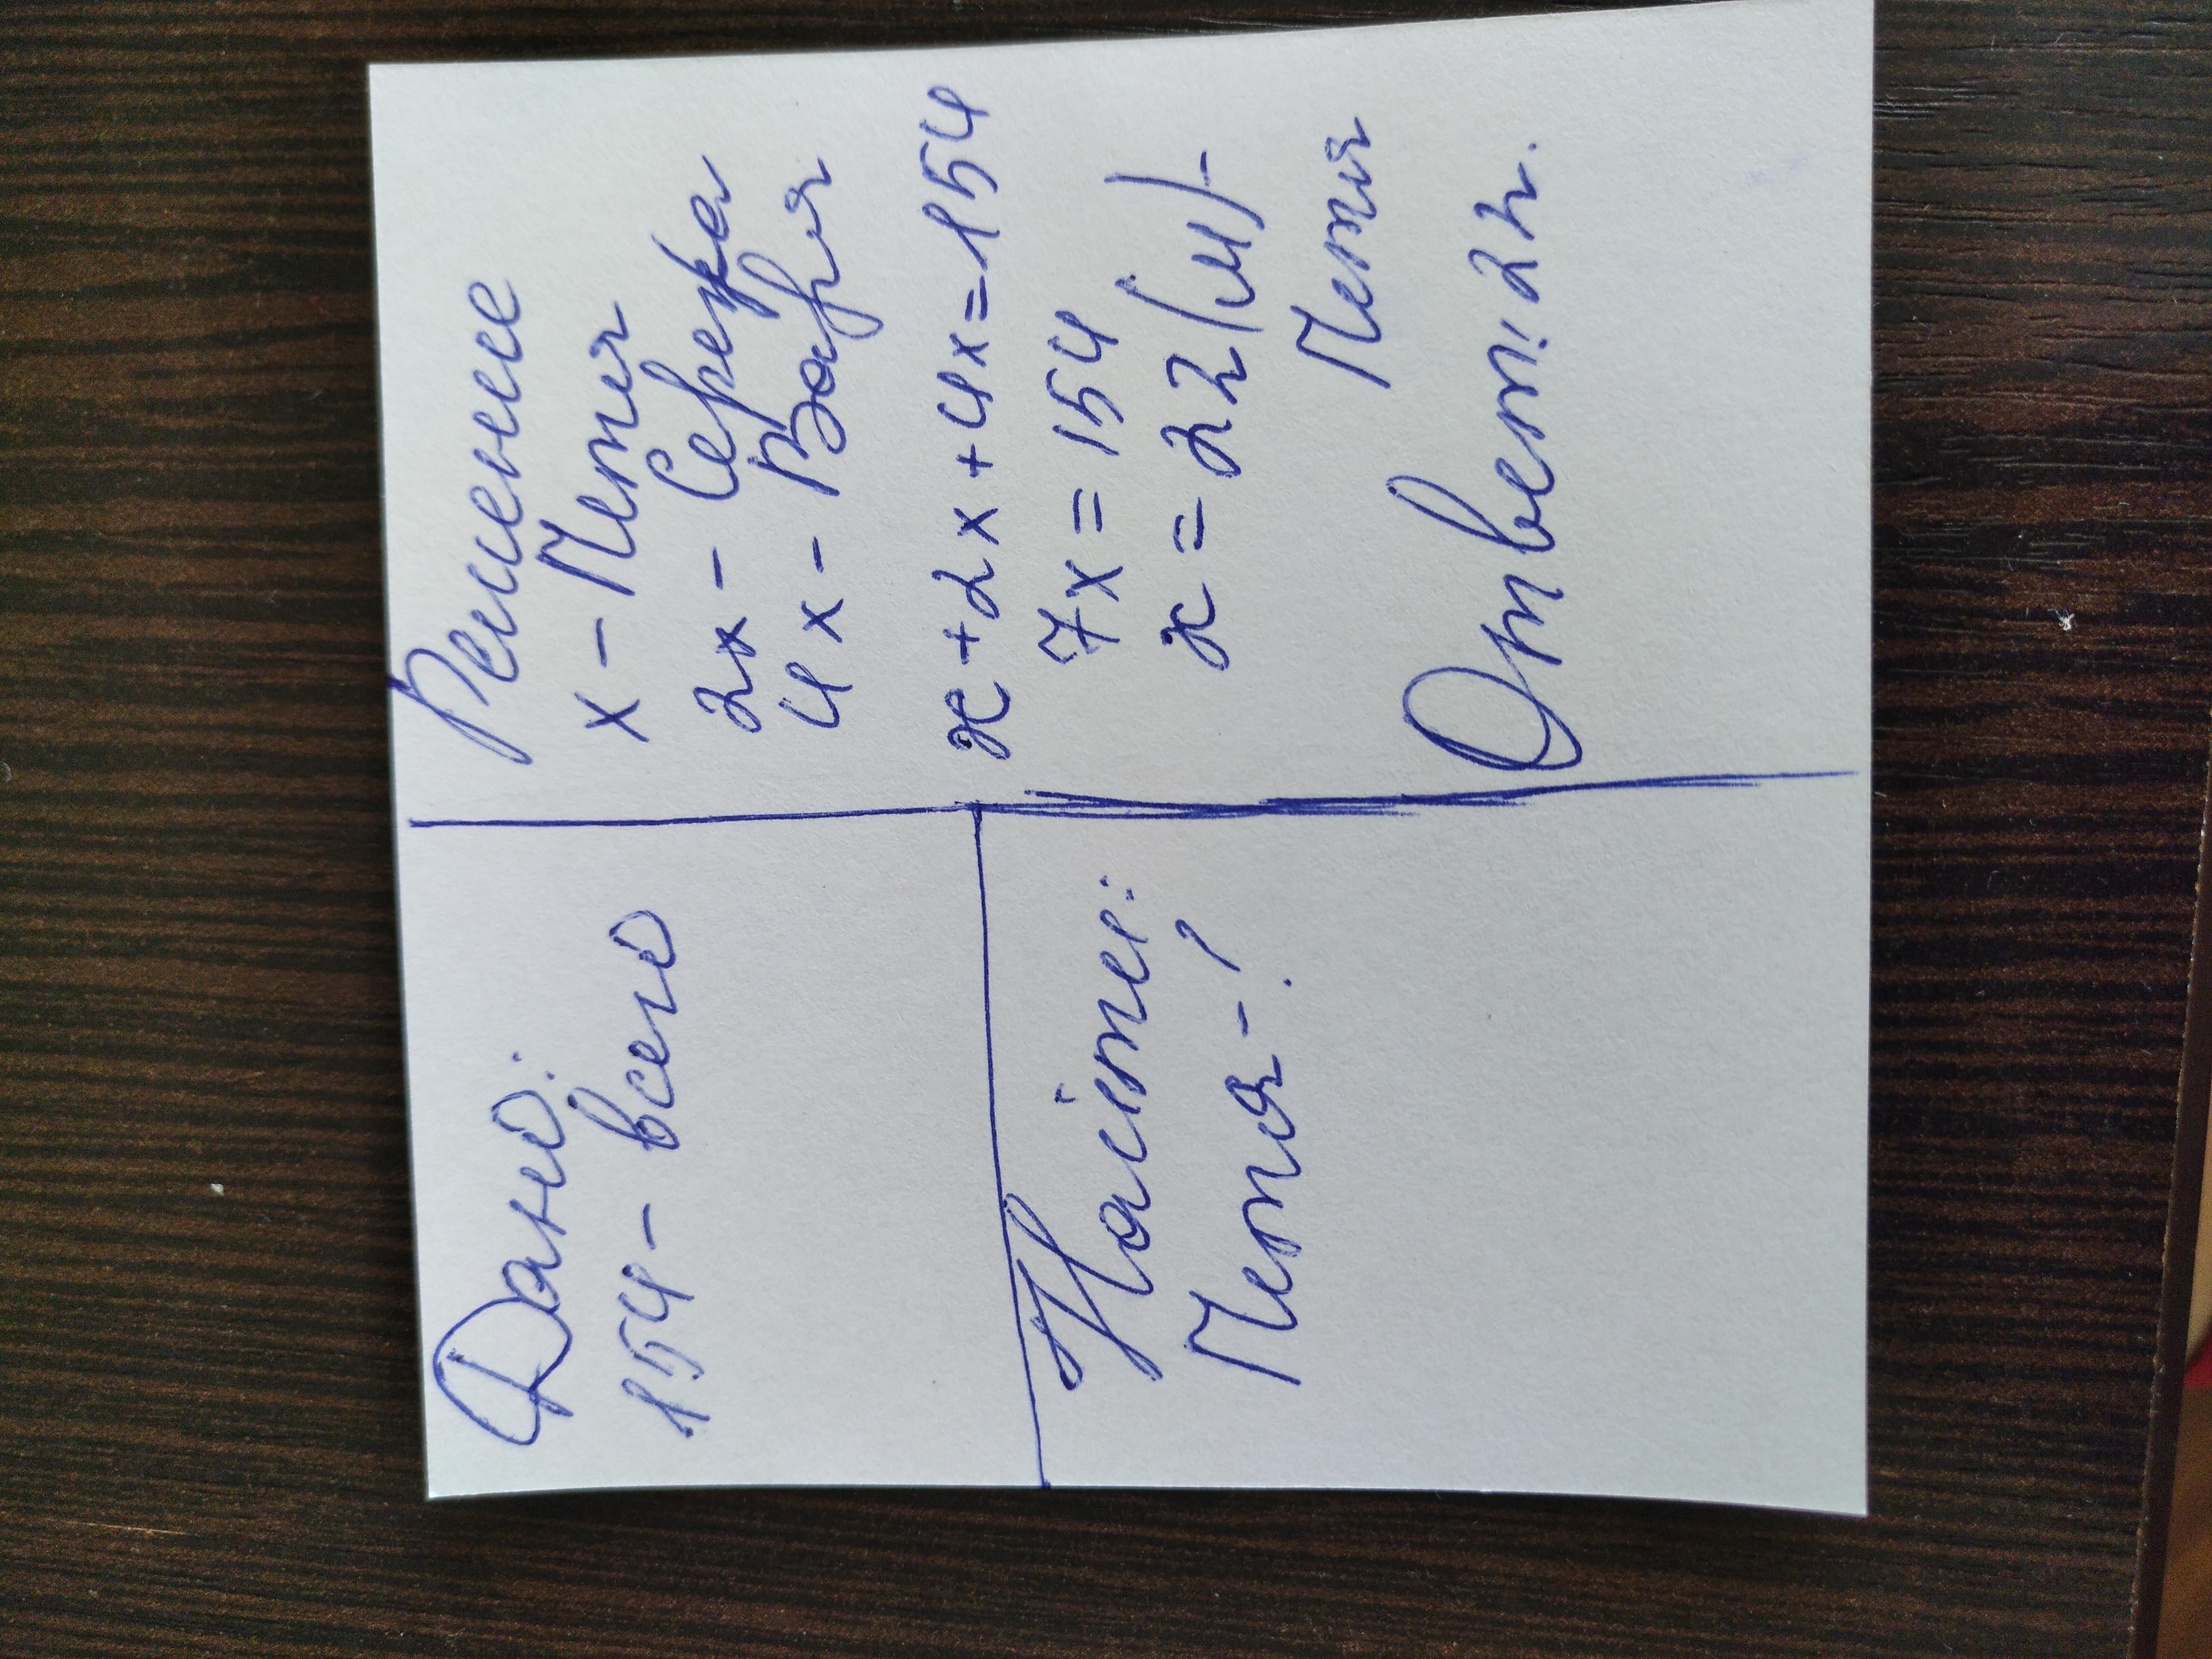 Дано:
154 - всего
Найти:
Петя - ?
Решение
х - Петя
2х - Сережа
4х - Варя
х + 2х + 4х = 154
7х = 154
х = 22 (м) -
Петя
Ответ: 22.